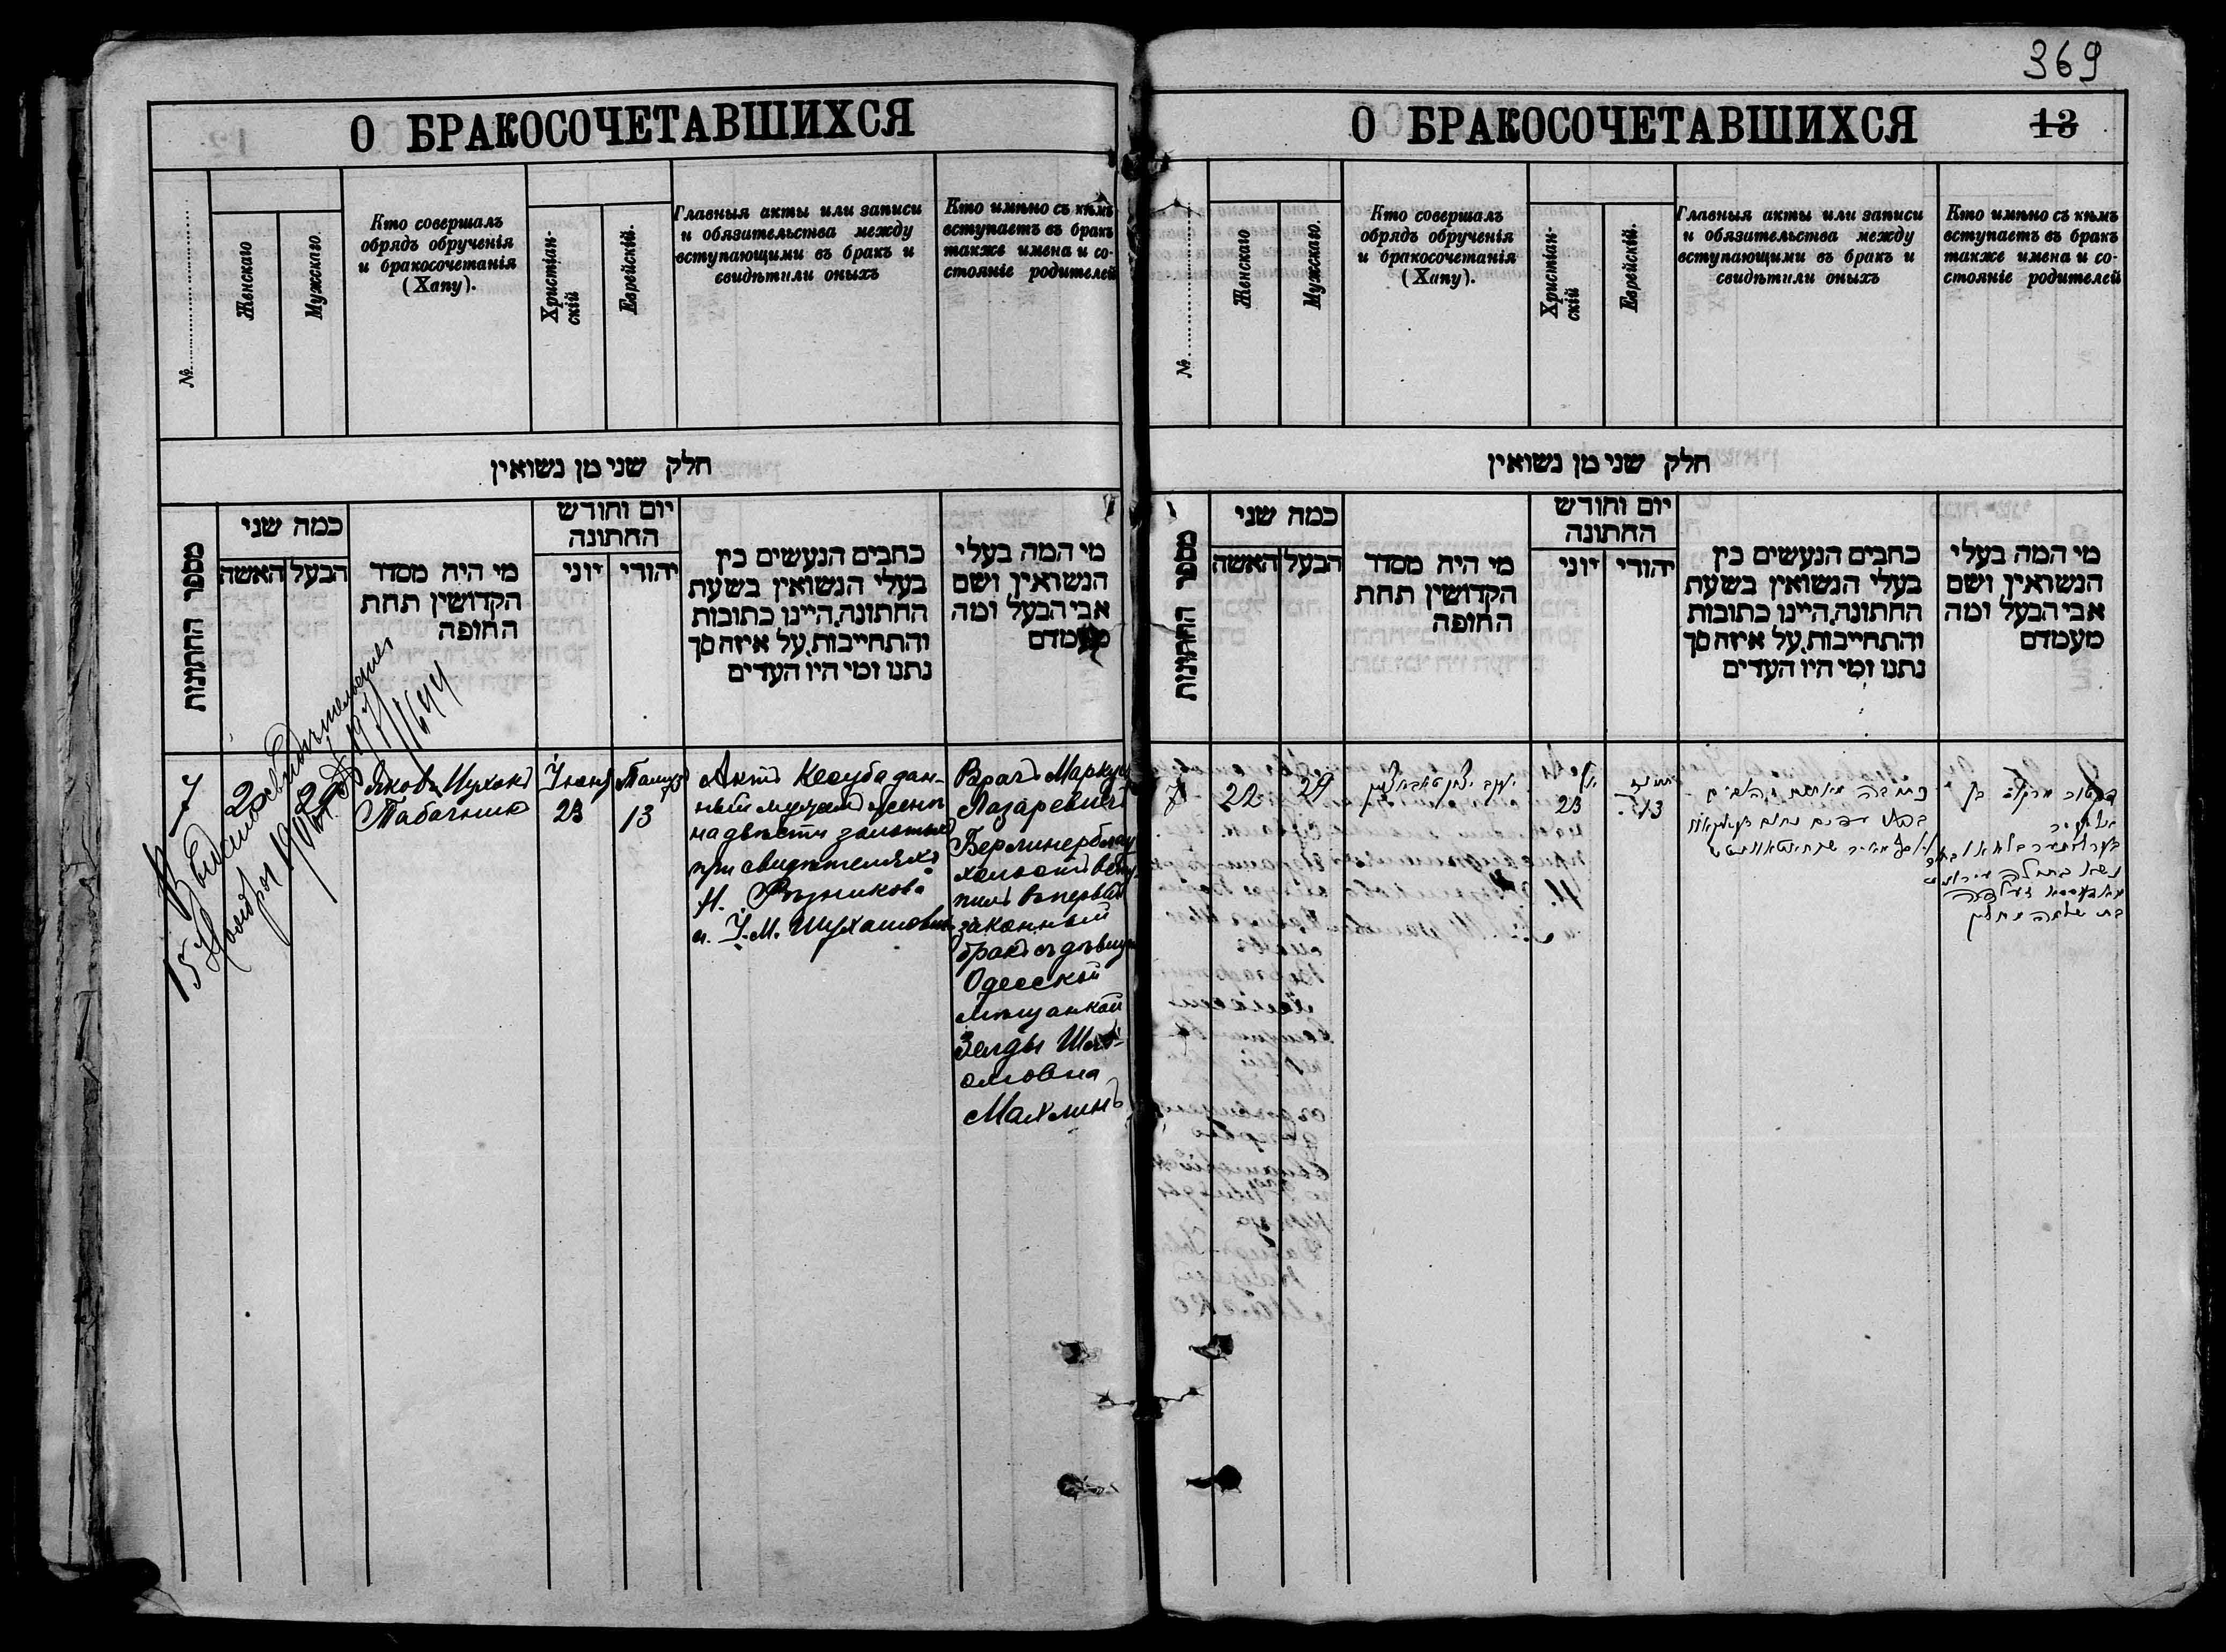 О БРАКОСОЧЕТАВШИХСЯ
№
Женскаго
Мужскаго.
Кто совершалъ
обрядъ обрученія
и бракосочетанія
(Хапу).
Христіан-
скій
Еврейскій.
Главныя акты или записи
и обязательства между
вступающими въ бракъ и
свидѣтили оныхъ
Кто имѣно съ кѣмъ
вступаетъ въ бракъ
также имена и со-
стояніе родителей
חלק שני מן נשואין
מספר החתונות
כמה שני
הבעל
האשה
מי היה מסדר
הקדושין תחת
החופה
יום וחודש
החתונה
יהודי
יוני
כתבים הנעשים בין
בעלי הנשואין בשעת
החתונה, היינו כתובות
והתחייבות, על איזה סך
נתנו ומי היו העדים
מי המה בעלי
הנשואין, ושם
אבי הבעל ומה
מעמדם
7
22
29
Яковъ Ицхокъ
Табачникъ
Іюня
23
Тамузъ
13
Актъ Кесуба дан-
ный мужемъ женѣ
на двѣсти золотыхъ
при свидѣтеляхъ
Н. Рѣзникова
и І. М. Шухатовичъ
Врачъ Маркусъ
Лазаревичъ
Берлинерблау
холостъ всту-
пилъ въ первый
законный
бракъ съ дѣвицей
Одесской
мѣщанкой
Зелды Шло-
омовна
Махлинъ
15 Ноября 1912
369
О БРАКОСОЧЕТАВШИХСЯ
13
№
Женскаго
Мужскаго.
Кто совершалъ
обрядъ обрученія
и бракосочетанія
(Хапу).
Христіан-
скій
Еврейскій.
Главныя акты или записи
и обязательства между
вступающими въ бракъ и
свидѣтили оныхъ
Кто имѣно съ кѣмъ
вступаетъ въ бракъ
также имена и со-
стояніе родителей
חלק שני מן נשואין
מספר החתונות
כמה שני
הבעל
האשה
מי היה מסדר
הקדושין תחת
החופה
יום וחודש
החתונה
יהודי
יוני
כתבים הנעשים בין
בעלי הנשואין בשעת
החתונה, היינו כתובות
והתחייבות, על איזה סך
נתנו ומי היו העדים
מי המה בעלי
הנשואין, ושם
אבי הבעל ומה
מעמדם
7
22
29
יעקב יצחק טאבאטשניק
יוני
23
תמוז
13